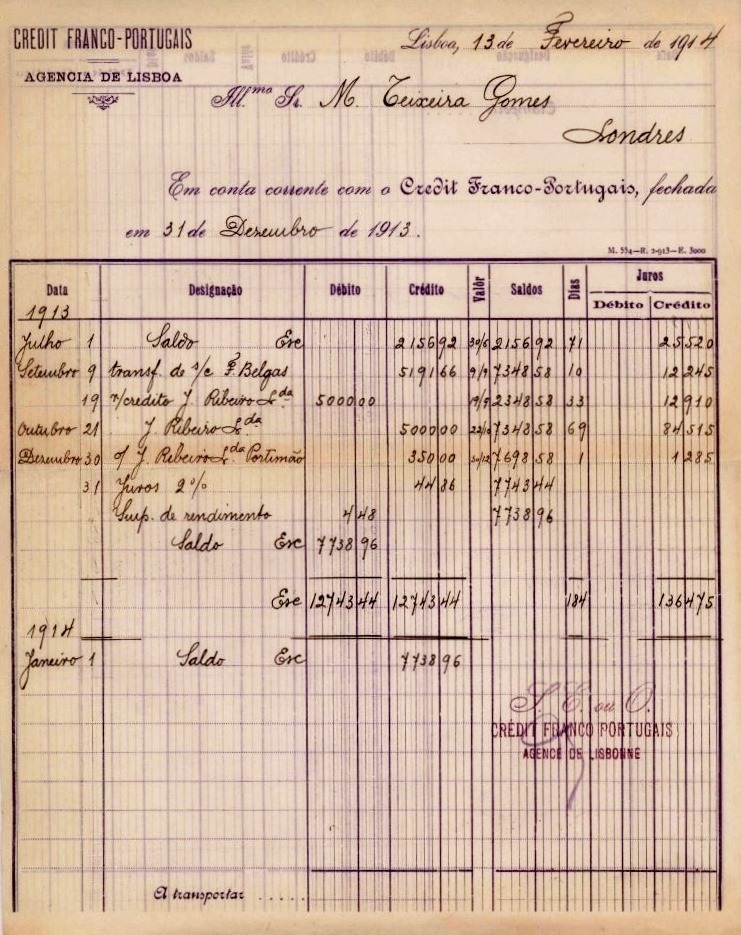 CREDIT FRANCO-PORTUGAIS
AGENCIA DE LISBOA
Lisboa, 13 de Fevereiro de 1914
Ill.mo Sr. M. Teixeira Gomes
Londres
Em conta corrente com o Credit Franco-Portugais, fechada
em 31 de Dezembro de 1913.
M. 554—R. 2-913—E. 3000
Data Designação Débito Crédito Valôr Saldos Dias Juros
Débito Crédito
1913
Julho 1 Saldo Esc 2156 92 30/6 2156 92 71 255 20
Setembro 9 transf. de s/c F. Belgas 5191 66 9/9 7348 58 10 122 45
19 n/credito J. Ribeiro L.da 5000 00 19/9 2348 58 33 129 10
Outubro 21 J. Ribeiro L.da 5000 00 22/10 7348 58 69 845 15
Dezembro 30 o/ J. Ribeiro L.da Portimão 350 00 30/12 7698 58 1 12 85
31 Juros 2% 44 86 7743 44
Imp. de rendimento 4 48 7738 96
Saldo Esc 7738 96
Esc 12743 44 12743 44 184 1364 75
1914
Janeiro 1 Saldo Esc 7738 96
S. E. ou O.
CRÉDIT FRANCO PORTUGAIS
AGENCE DE LISBONNE
A transportar . . . . .